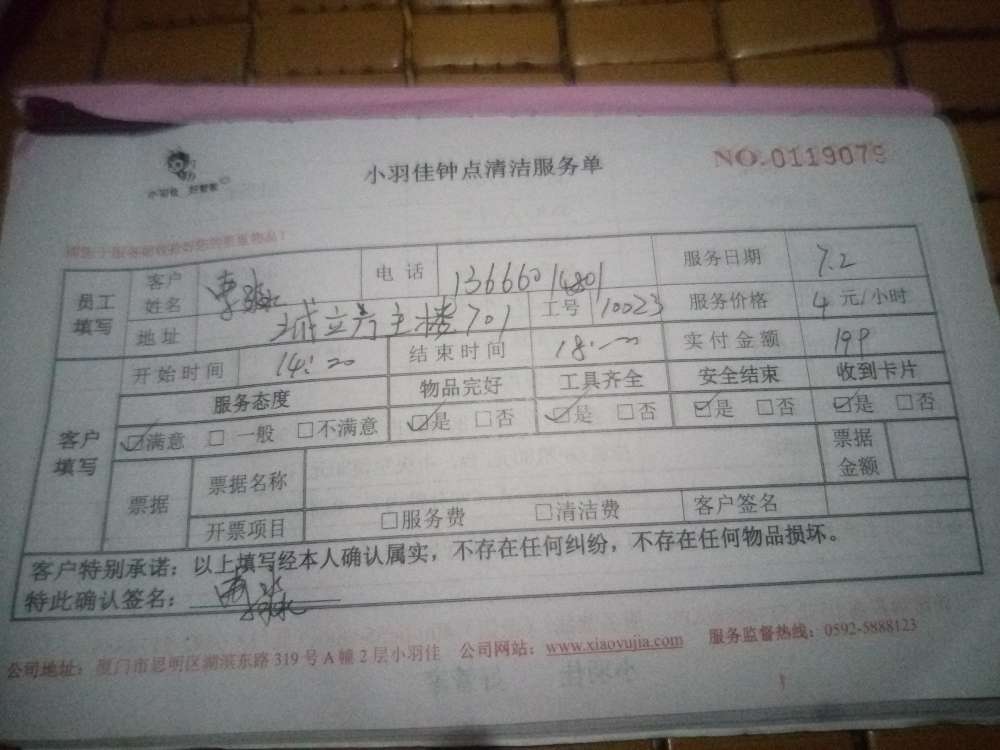 小羽佳 好管家
小羽佳钟点清洁服务单
NO.0119079
员工填写 客户姓名 电话 13666014801 服务日期 7.2
地址 城立方主楼701 工号 10023 服务价格 4 元/小时
客户填写 开始时间 14:20 结束时间 18: 实付金额 199
服务态度 物品完好 工具齐全 安全结束 收到卡片
☑满意 □一般 □不满意 ☑是 □否 ☑是 □否 ☑是 □否 ☑是 □否
票据 票据名称 票据金额
开票项目 □服务费 □清洁费 客户签名
客户特别承诺:以上填写经本人确认属实,不存在任何纠纷,不存在任何物品损坏。
特此确认签名:
公司地址:厦门市思明区湖滨东路 319 号 A 幢 2 层小羽佳 公司网站:www.xiaoyujia.com 服务监督热线:0592-5888123